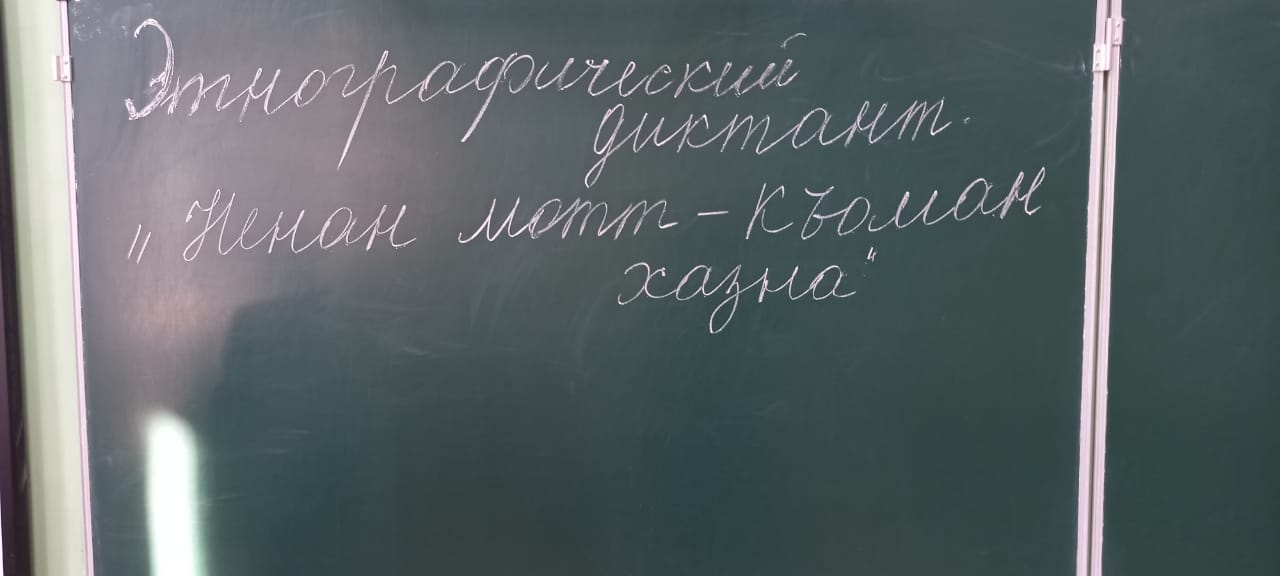 Этнографический
диктант.
"Ненан мотт - Къоман
хазна"